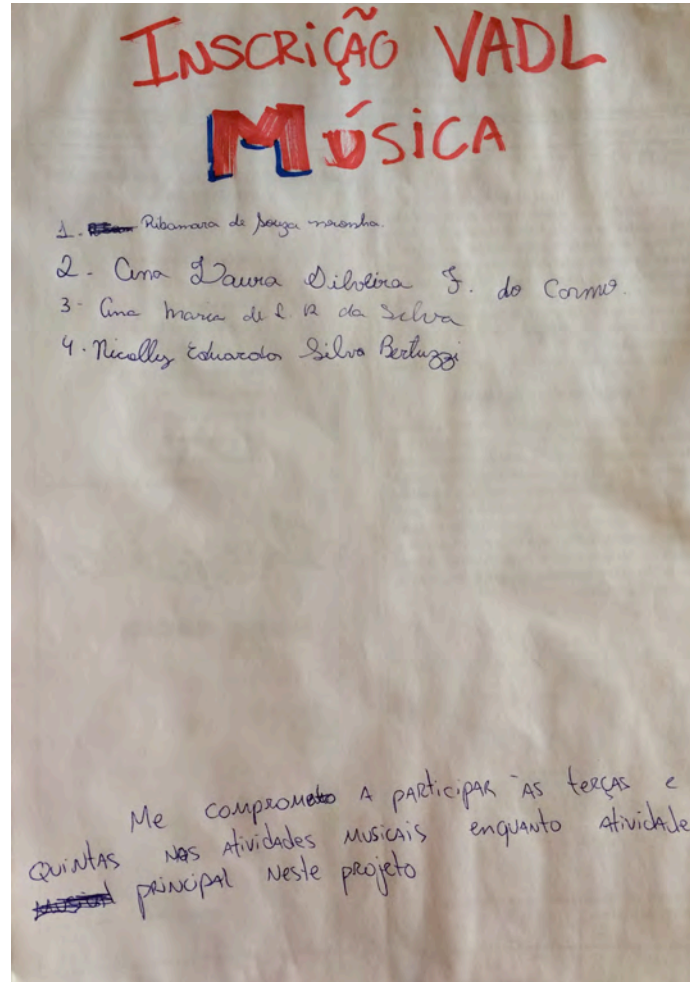 INSCRIÇÃO VADL
MÚSICA
1. Ribamara de Souza noronha.
2 - Ana Laura Silveira F. do Carmo.
3 - Ana Maria de L. R da Silva
4. Nicolly Eduarda Silva Bertuzzi
Me comprometo A pARticipAR às terças e
QUINTAS NAS AtividAdes MUSICAIS enquanto Atividade
pRiNcipAl Neste projeto